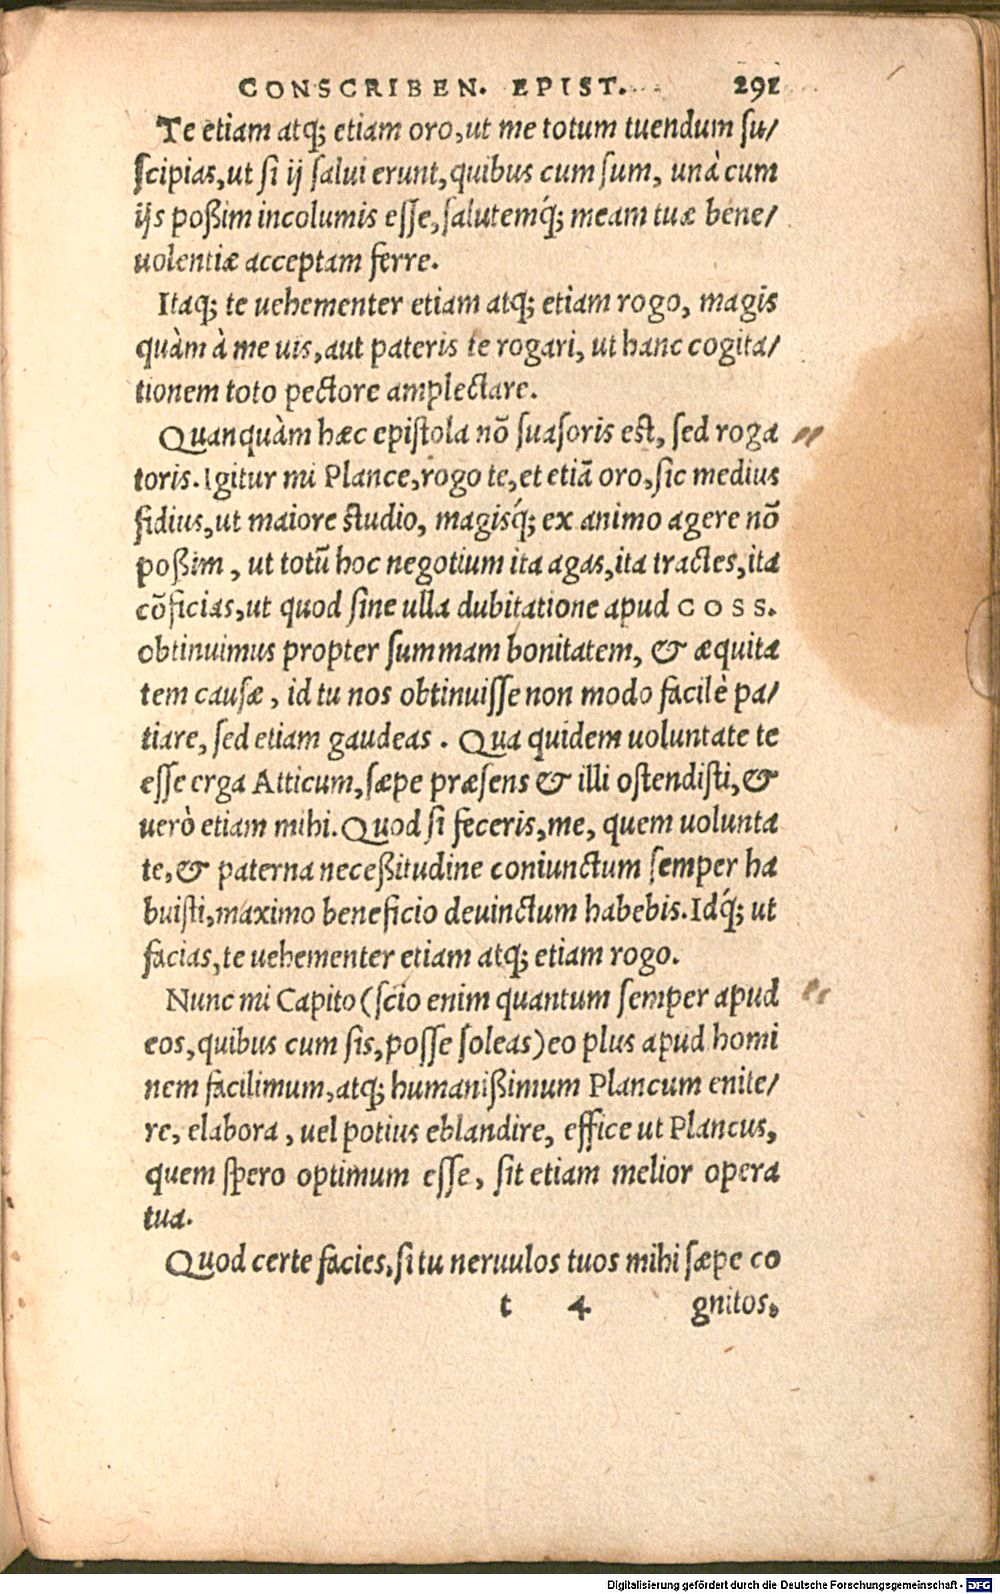 CONSCRIBEN. EPIST. 291
Te etiam atq; etiam oro, ut me totum tuendum su/
scipias, ut si ij salui erunt, quibus cum sum, unà cum
ijs poßim incolumis esse, salutemq́; meam tuæ bene/
uolentiæ acceptam ferre.
Itaq; te uehementer etiam atq; etiam rogo, magis
quàm à me uis, aut pateris te rogari, ut hanc cogita/
tionem toto pectore amplectare.
Quanquàm hæc epistola nõ suasoris est, sed roga
toris. Igitur mi Plance, rogo te, et etiã oro, sic medius
fidius, ut maiore studio, magisq́; ex animo agere nõ
poßim, ut totũ hoc negotium ita agas, ita tractes, ita
cõficias, ut quod sine ulla dubitatione apud COSS.
obtinuimus propter summam bonitatem, & æquita
tem causæ, id tu nos obtinuisse non modo facilè pa/
tiare, sed etiam gaudeas. Qua quidem uoluntate te
esse erga Atticum, sæpe præsens & illi ostendisti, &
uerò etiam mihi. Quod si feceris, me, quem uolunta
te, & paterna neceßitudine coniunctum semper ha
buisti, maximo beneficio deuinctum habebis. Idq́; ut
facias, te uehementer etiam atq; etiam rogo.
Nunc mi Capito (scio enim quantum semper apud
eos, quibus cum sis, posse soleas) eo plus apud homi
nem facilimum, atq; humanißimum Plancum enite/
re, elabora, uel potius eblandire, effice ut Plancus,
quem spero optimum esse, sit etiam melior opera
tua.
Quod certe facies, si tu neruulos tuos mihi sæpe co
t 4 gnitos,
Digitalisierung gefördert durch die Deutsche Forschungsgemeinschaft - DFG